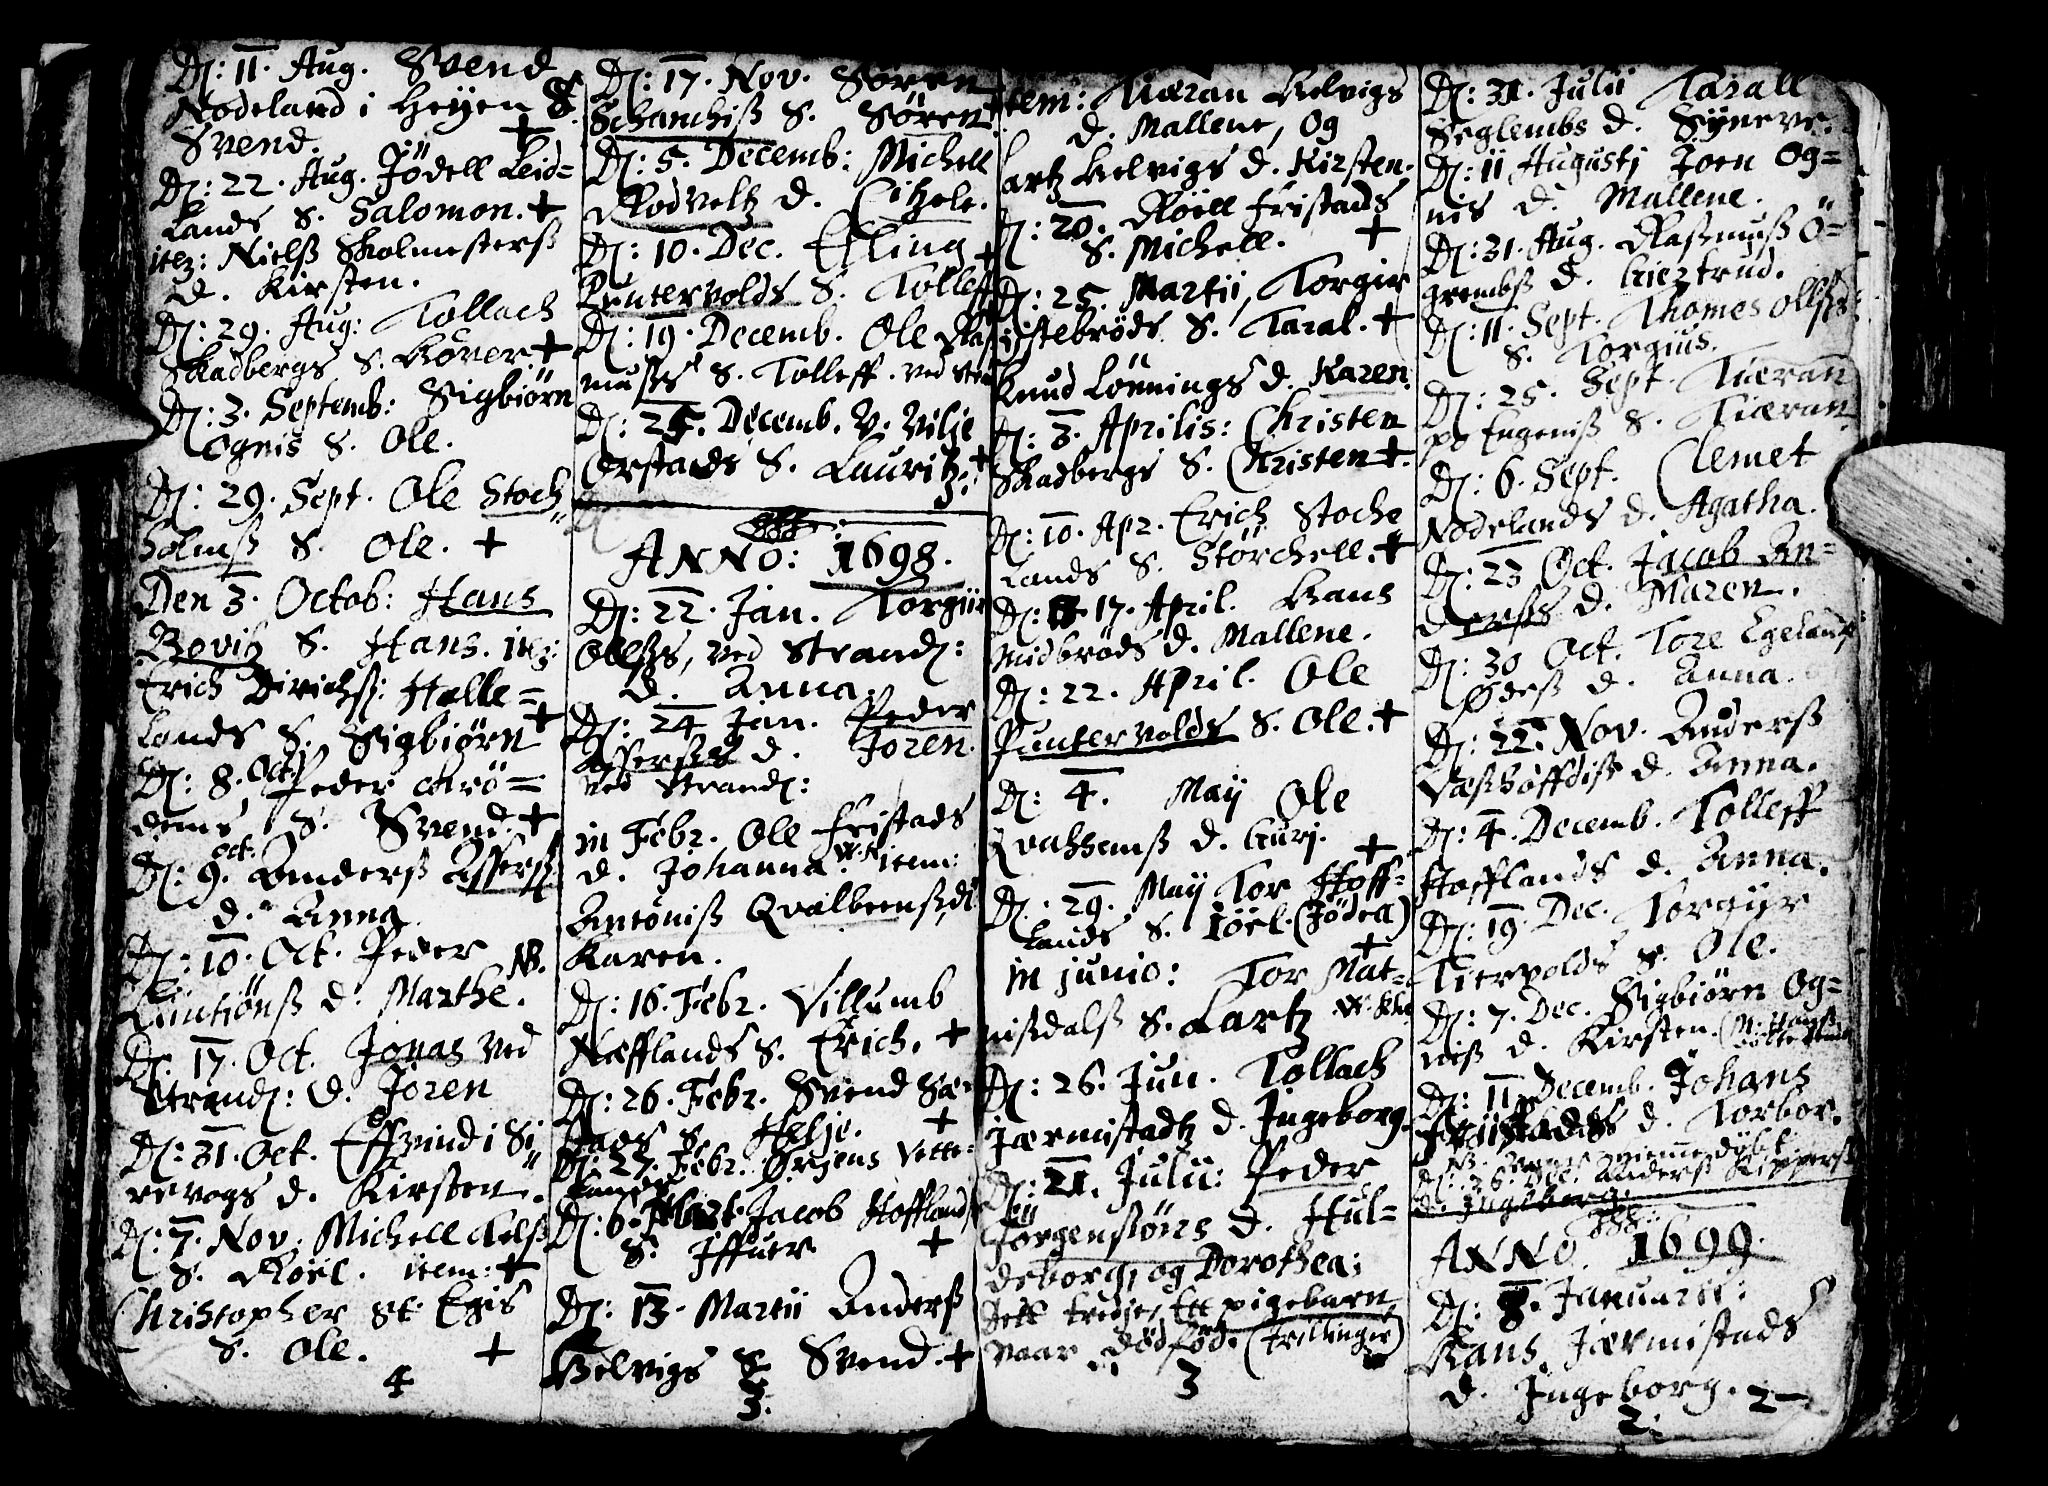 D: 11. Aug. Svend
Nodeland i Heyen S.
Svend. +
D: 22. Aug. Jödell Leid=
lands S. Salomon. +
item: Nielß Skolmesterß
d. Kirsten.
D: 29. Aug: Tollach
Skadbergs S. Kover +
D: 3. Septemb: Sigbiörn
Ognis S. Ole.
D: 29. Sept. Ole Stoch
holmß S. Ole. +
Den 3. Octob: Hans
Bovitz S. Hans. item:
Erich Dirichß: Helle=
lands S. Sigbiørn +
D: 8. Oct. Peder
dems S. Svend. +
D: 9. Oct. Anderß Asserß
d. Anna
D: 10. Oct. Peder NB.
d. Marthe.
D: 17. Oct. Jonas ved
Strand: d. Joren
D: 31. Oct. Effvind i Si
revogs d. Kirsten.
D: 7. Nov. Michell
S. Roël. item: +
Christopher St. Egis
S. Ole. +
4
D: 17. Nov. Søren
Schanchiß S. Søren +
D: 5. Decemb: Michell
Rodveltz d. Citzele.
D: 10. Dec. Efling +
Puntervolds S. Tolleff
D: 19. Decemb. Ole Ras
mußs S. Tolleff. ved
D: 25. Decemb. V. Vilje
Orstads S. Lauritz. +
3.
ANNO: 1698.
D: 22. Jan. Torgiir
Olßs, ved Strand:
d. Anna.
D: 24 Jan. Peder
Asserßs d. Joren.
ved Strand:
in Febr. Ole Fristads
d. Johanna. item:
Antoniß Qvalbeenß d.
Karen.
D: 16. Febr. Villumb
Næfflands S. Erich. +
D: 26. Febr. Svend
S. Helje. +
D: 27. Febr. Ørjens Vette=
D: 6. Mart. Jacob Hofflands
S. Iffuer +
D: 13. Martii Anderß
Helvigs S. Svend. +
3.
Item: Tiæran Helvigs
d. Mallene, og
Lartz Helvigs d. Kirsten.
D: 20. Roëll Fristads
S. Michell. +
D: 25. Martii, Torgir
istebrøds S. Taral. +
Knud Lønnings d. Karen.
D: 3. Aprilis: Christen
Skadbergs S. Christen +.
D: 10. Apr. Erich Stoche
lands S. Størchell. +
D: 17. April. Hans
Midbrøds d. Mallene.
D: 22. April. Ole
Puntervolds S. Ole. +
D: 4. May Ole
Qvahsemß d. Gurj.
D: 29. May Tor Hoff= +
lands S. Iöel. (Jödea)
in junio: Tor Mat= +
nißdalß S. Lartz
D: 26. Jun. Tollach
Jærmistadtz d. Ingeborg.
D: 21. Julii: Peder
Jorgensøns d. Hul=
deborg, og Dorothea;
Dett tredje, Ett pigebarn
vaar dødfød. (Trillinger)
3
D: 31. Julii Tarall
Seglembs d. Syneve.
D: 11 Augustj Joen Og=
nis d. Mallene.
D: 31. Aug. Raßmuß Ö=
grembß d. Giertrud.
D: 11. Sept. Thomes Olßs:
S. Torgius.
D: 25. Sept. Tiæran
pa Engeniß S. Tiæran
D: 6. Sept. Clemet
Nodelands d. Agatha.
D: 23 Oct. Jacob An=
derßs d. Maren.
D: 30 Oct. Tore Egelands
Ødeß d. Anna.
D: 22. Nov. Anderß
Væßhøffdiß d. Anna.
D: 4. Decemb. Tolleff
Hofflands d. Anna.
D: 19. Dec. Torgiir
Tiervolds S. Ole.
D: 7. Dec. Sigbiørn Og=
niß d. Kirsten.
D: 11 Decemb. Johans
d. Torbor.
NB. hiemmedøbt
D: 26. Dec. Anderß Kipperß
d. Ingeborg.
ANNO. 1699.
D: 8. Januarii:
Hans Jærmistads
d. Ingeborg. 2
2.